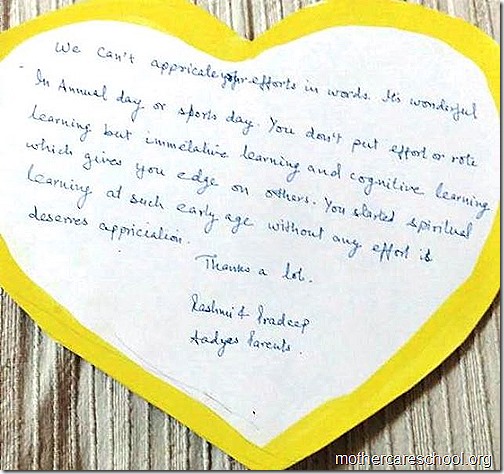 We can't appricale your efforts in words. It's wonderful
In Annual day or sports day. You don't put effort or rote
learning but immelative learning and cognitive learning
which gives you edge on others. You started spiritual
learning at such early age without any effort is
deserres appriciation.
Thanks a lot.
Rashmi & Pradeep
Aadyes Parents.
mothercareschool.org